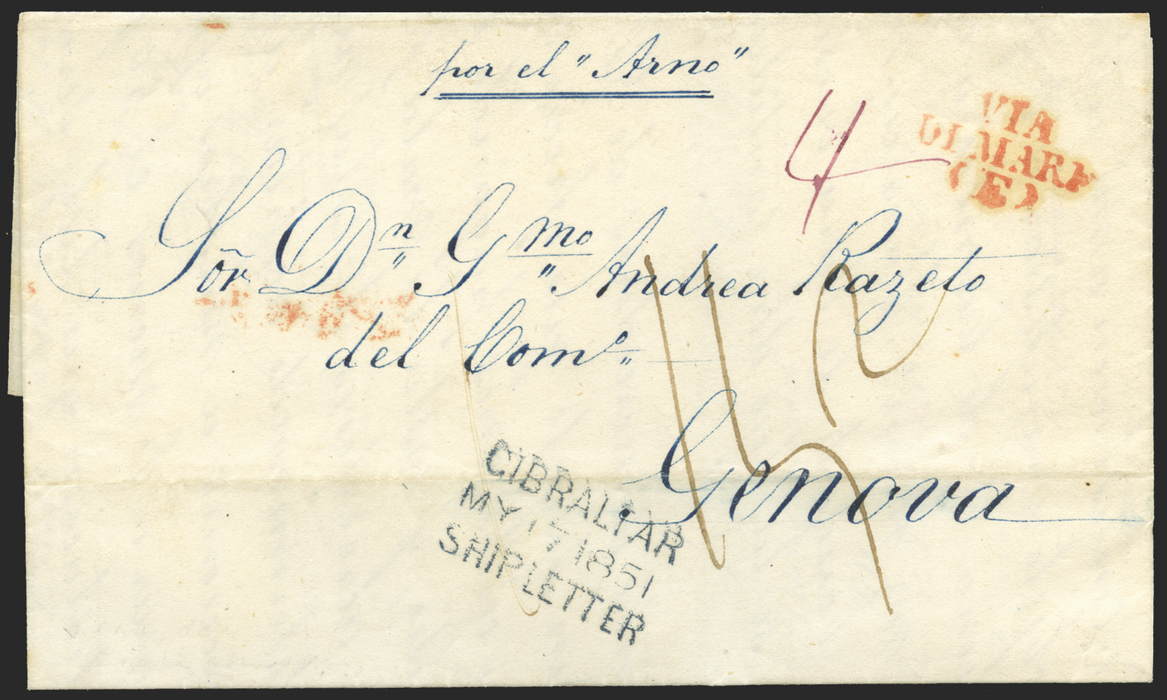 por el "Arno"
4
VIA
DI MARE
(E)
Sõr Dn Gmo Andrea Razeto
del Como
Genova
GIBRALTAR
MY 17 1851
SHIP LETTER